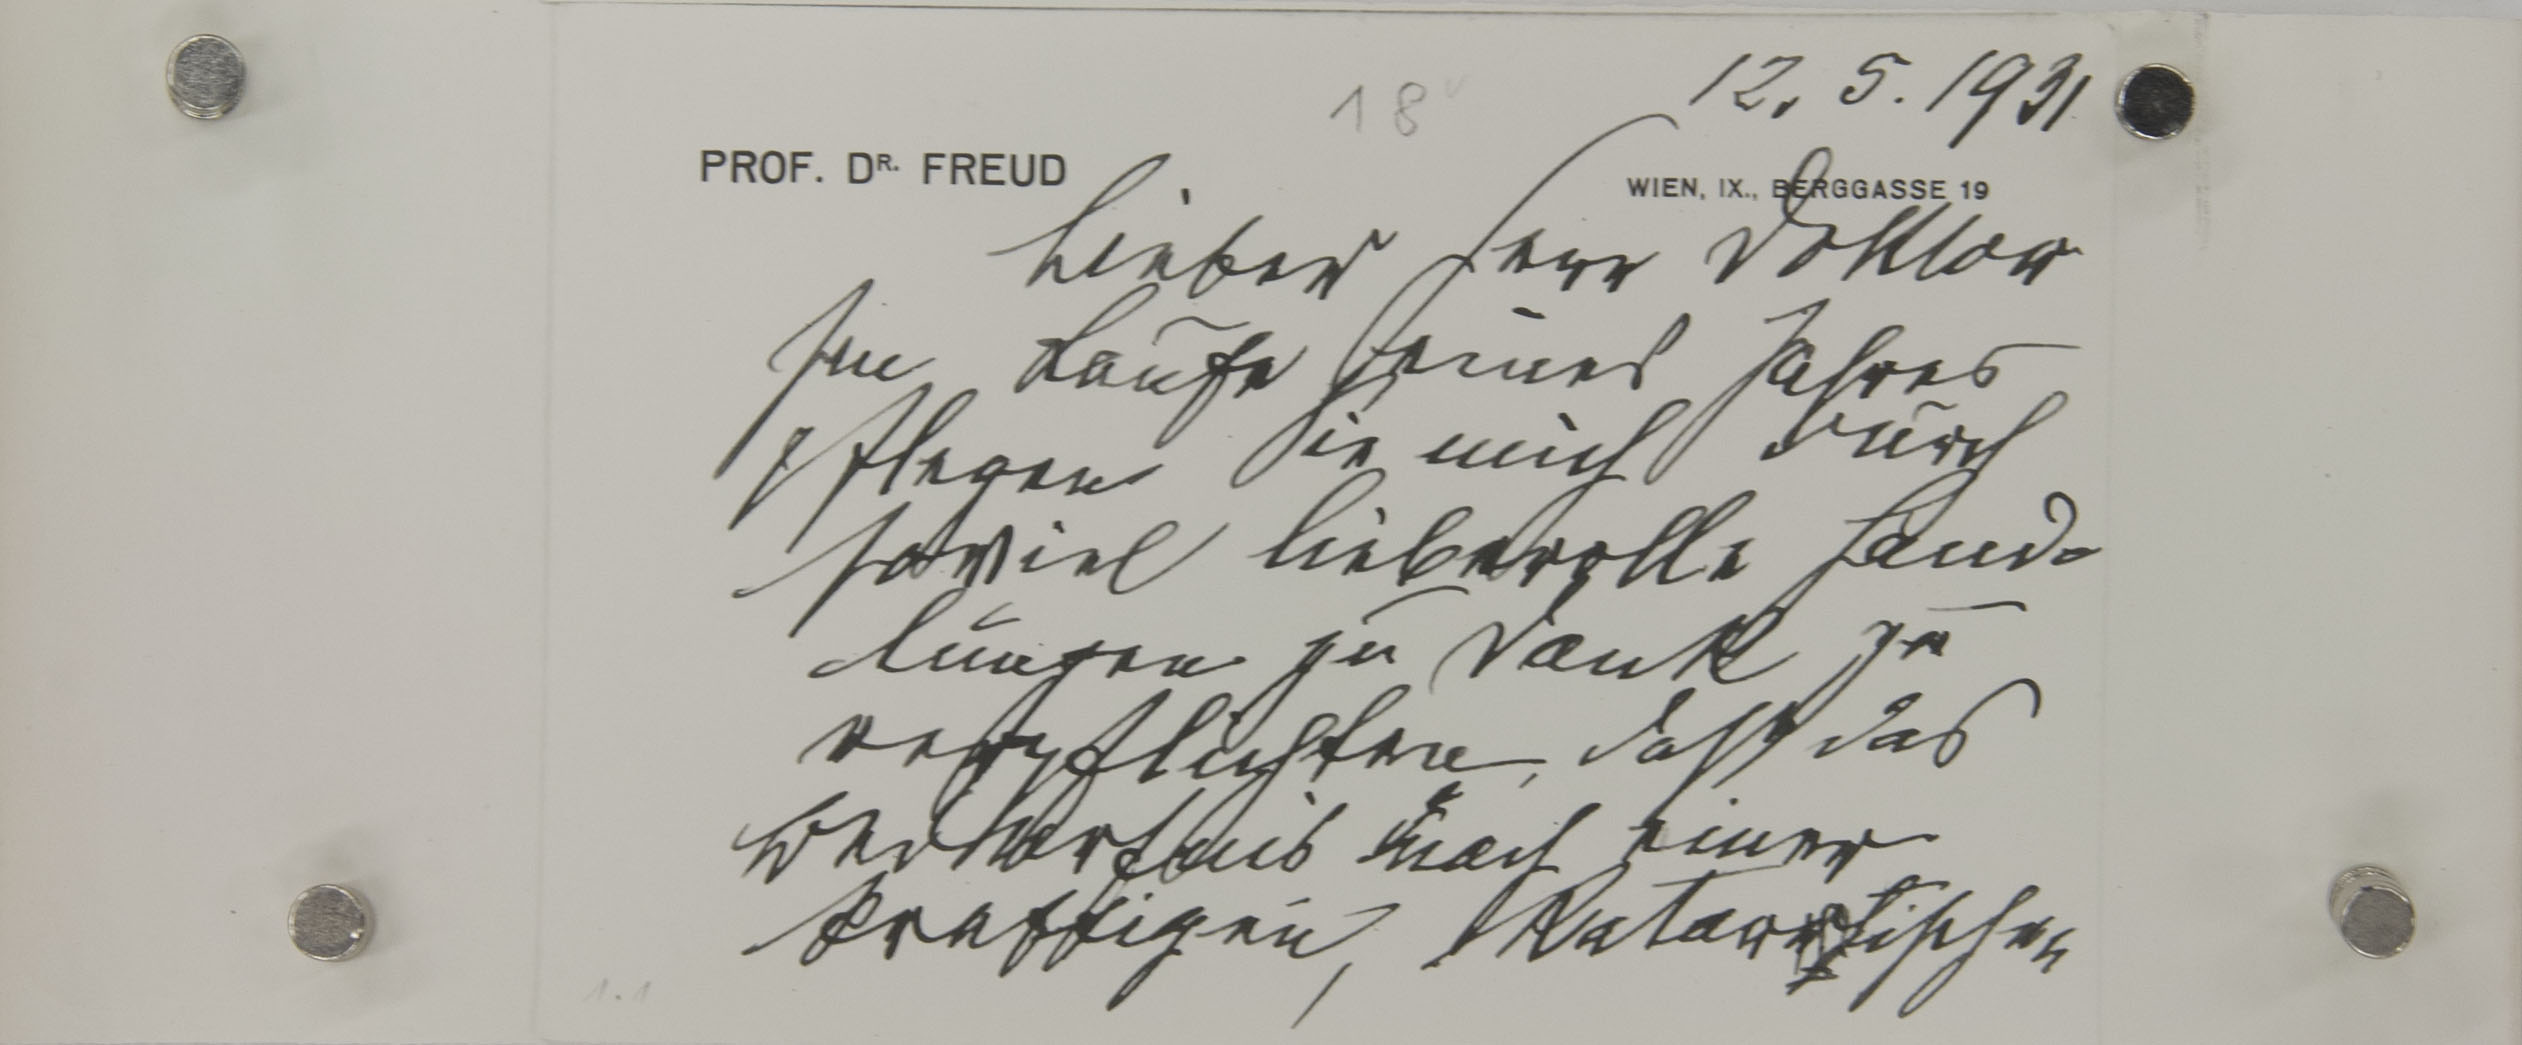 12. 5. 1931
18
PROF. DR. FREUD
WIEN, IX., BERGGASSE 19
Lieber Herr Doktor
Im Laufe eines Jahres
pflegen Sie mich durch
soviel liebevolle Hand-
lungen zu Dank zu
verpflichten, daß das
Bedürfnis nach einer
kräftigen, kathartischen
1.1